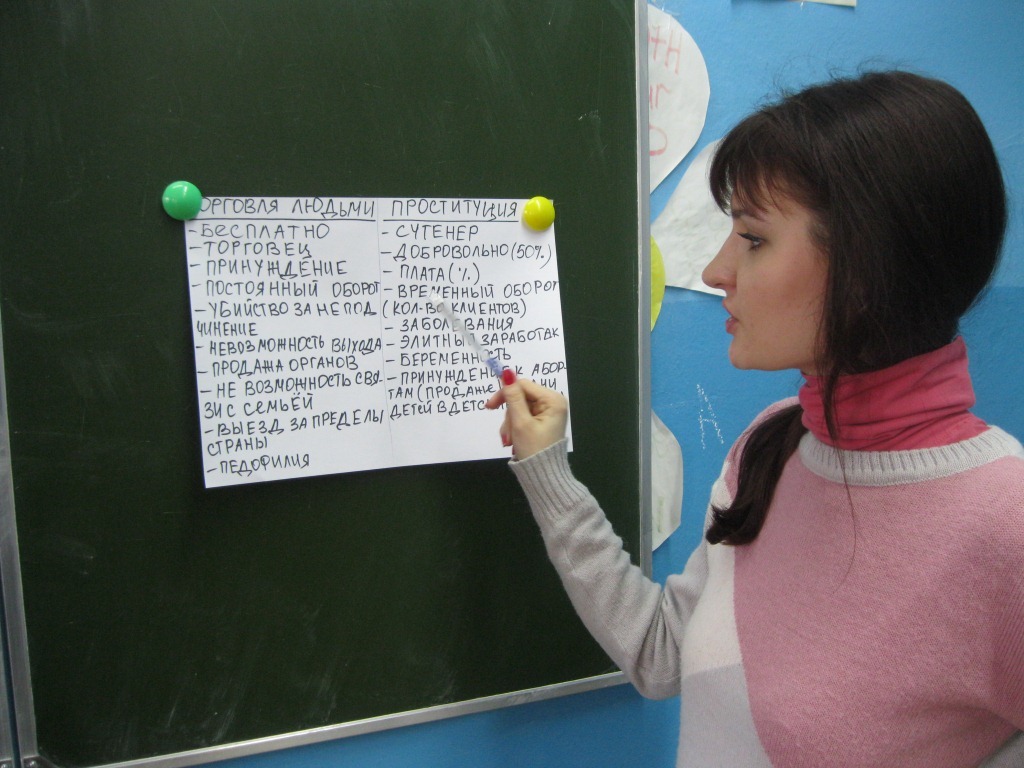 ОРГОВЛЯ ЛЮДЬМИ
- БЕСПЛАТНО
- ТОРГОВЕЦ
- ПРИНУЖДЕНИЕ
- ПОСТОЯННЫЙ ОБОРОТ
- УБИЙСТВО ЗА НЕ ПОД
ЧИНЕНИЕ
- НЕВОЗМОЖНОСТЬ ВЫХОДА
- ПРОДАЖА ОРГАНОВ
- НЕ ВОЗМОЖНОСТЬ СВЯ-
ЗИ С СЕМЬЁЙ
- ВЫЕЗД ЗА ПРЕДЕЛЫ
СТРАНЫ
- ПЕДОФИЛИЯ
ПРОСТИТУЦИЯ
- СУТЕНЕР
- ДОБРОВОЛЬНО (50%)
- ПЛАТА (%)
- ВРЕМЕННЫЙ ОБОРОТ
(КОЛ-ВО КЛИЕНТОВ)
- ЗАБОЛЕВАНИЯ
- ЭЛИТНЫЙ ЗАРАБОТОК
- БЕРЕМЕННОСТЬ
- ПРИНУЖДЕНИЕ К АБОР-
ТАМ (ПРОДАЖЕ
ДЕТЕЙ В